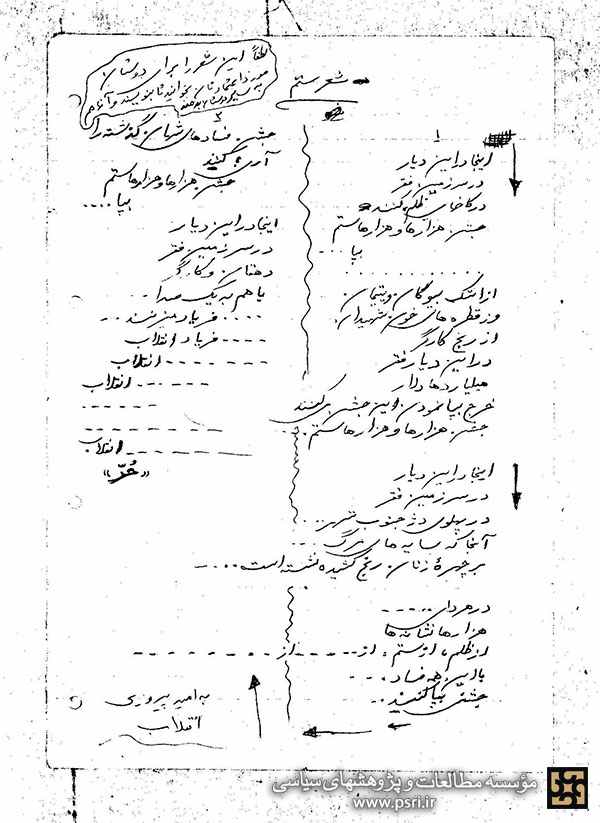 لطفاً این شعر را برای دوستان
مورد اعتمادتان بخوانید تا بنویسند و آنها هم
به سایر دوستان بدهند
شعر ستم
۱
اینجا در این دیار
در سرزمین فقر
در کاخهای ظلم کنند
جشن هزارها و هزارها ستم
بپا ....
. . . . . . . . . . .
از اشک بیوگان و یتیمان
وز قطره های خون شهیدان
از رنج کارگر
در این دیار فقر
میلیاردها دلار
خرج بپا نمودن این جشن می کنند
جشن هزارها و هزارها ستم ...
اینجا در این دیار
در سرزمین فقر
در پهلوی دژ جنوب شهر ...
آنجا که سایه های مرگ ...
بر چهره زنان رنج کشیده نشسته است ....
در هر دلی .....
هزارها نشانه ها
از ظلم، از ستم، از ..... از - - - - - - -
با این همه فساد ....
جشنی بپا کنند ..
۲
جشن فسادهای نهان گذشته را
آری کنند
جشن هزارها و هزارها ستم
بپا ....
اینجا در این دیار
در سرزمین فقر
دهقان و کارگر
با هم به یک صدا ..
.... فریاد میزنند ...
.... فریاد انقلاب
- - - - - - انقلاب
- - - - - انقلاب
- - - - - -
- - - - - - - - -
- - - - - - - انقلاب
«عُرّ»
به امید پیروزی
انقلاب
مؤسسه مطالعات و پژوهشهای سیاسی
www.psri.ir